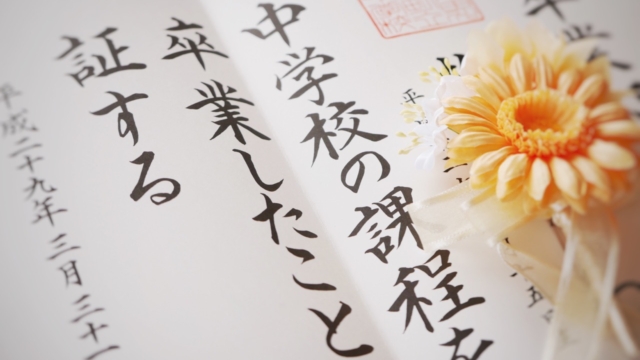 平
中学校の課程を
卒業したこと
証する
平成二十九年三月三十一